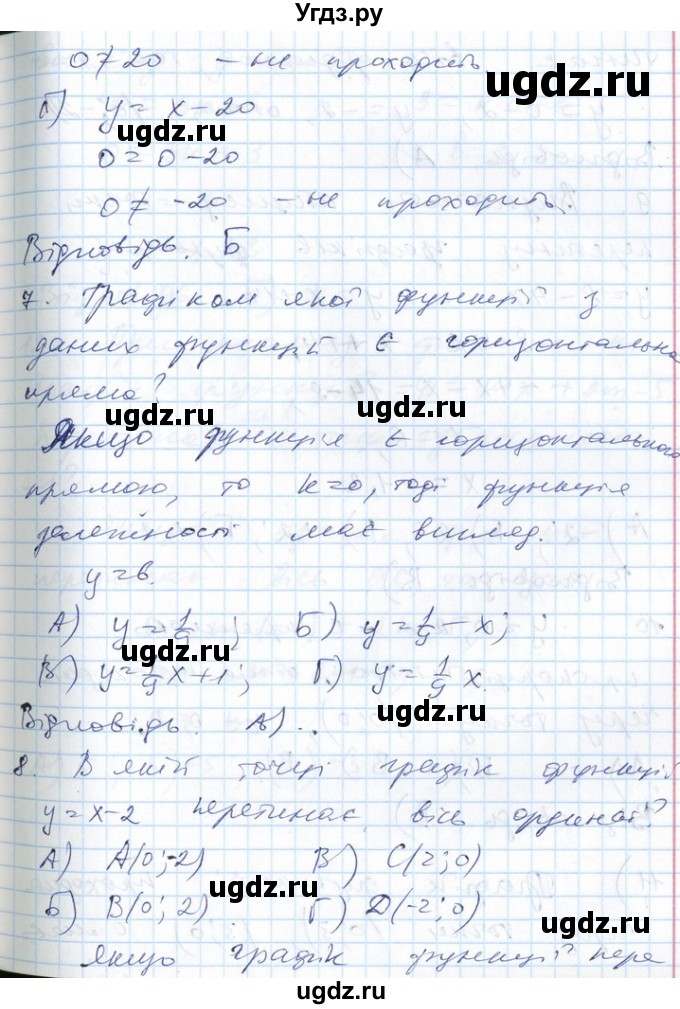 Угдз.ру
0≠20 – не проходить
ugdz.ru
Г) y = x – 20
ugdz.ru
0 = 0 – 20
0 ≠ –20 – не проходить.
Відповідь. Б
ugdz.ru ugdz.ru
7. Графіком якої функції з
даних функцій є горизонтальна
пряма?
ugdz.ru ugdz.ru
Якщо функція є горизонтального
прямою, то k=0, тоді функція
залежності має вигляд:
y=b.
ugdz.ru
А) y = 1/9; Б) y = 1/9 – x;
ugdz.ru
В) y = 1/9 x + 1; Г.) y = 1/9 x.
ugdz.ru
Відповідь. А)..
8. В якій точці графік функції
ugdz.ru
y = x – 2 перетинає вісь ординат?
А) A(0; –2) В) C(2; 0)
ugdz.ru
Б) B(0; 2) Г) D(–2; 0)
ugdz.ru
якщо графік функції пере
ugdz.ru